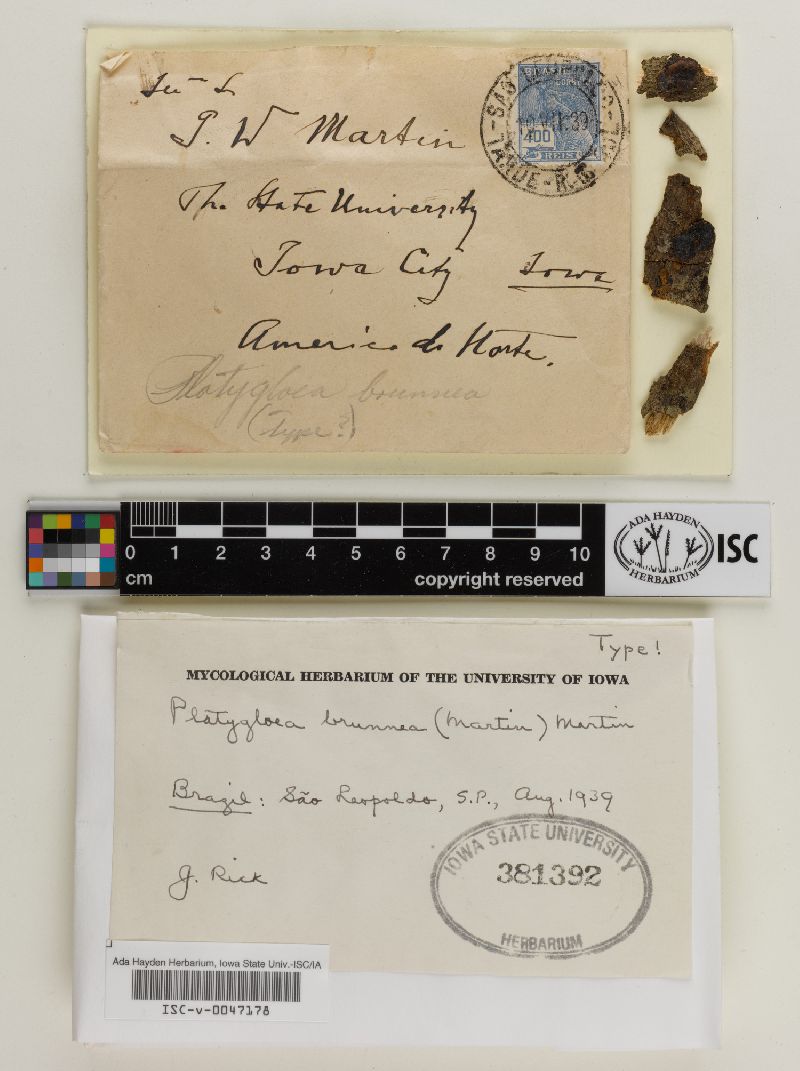 P. W Martin
The State University
Iowa City Iowa
America do Norte.
Platygloea brunnea
(Type?)
400
REIS
TARDE - R. G.
0 1 2 3 4 5 6 7 8 9 10
cm
copyright reserved
ADA HAYDEN
HERBARIUM
ISC
Type!
MYCOLOGICAL HERBARIUM OF THE UNIVERSITY OF IOWA
Platygloea brunnea (Martin) Martin
Brazil: São Leopoldo, S.P., Aug. 1939
J. Rick
IOWA STATE UNIVERSITY
381392
HERBARIUM
Ada Hayden Herbarium, Iowa State Univ.-ISC/IA
ISC-v-0047178